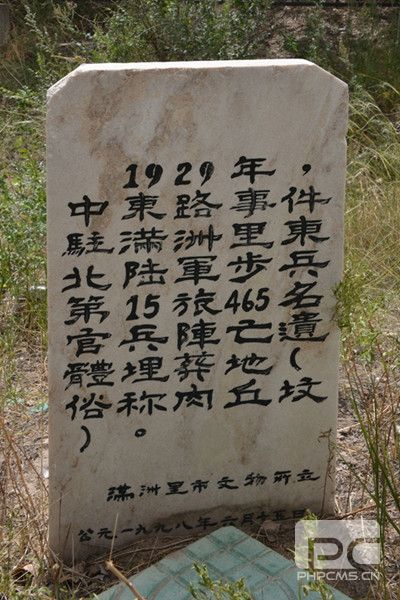 1929年，
中東路事件
駐滿洲里東
北陸軍步兵
第15旅465名
官兵陣亡遺
體埋葬地(
俗稱肉丘坟
)。
滿洲里市文物所立
公元一九九八年六月十五日
PC
PHPCMS.CN